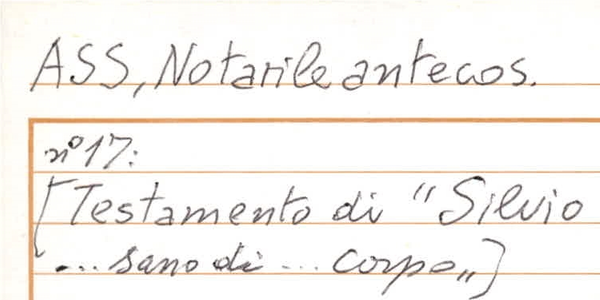 ASS, Notarile antecos.
n° 17:
[Testamento di "Silvio
... sano di ... corpo„]